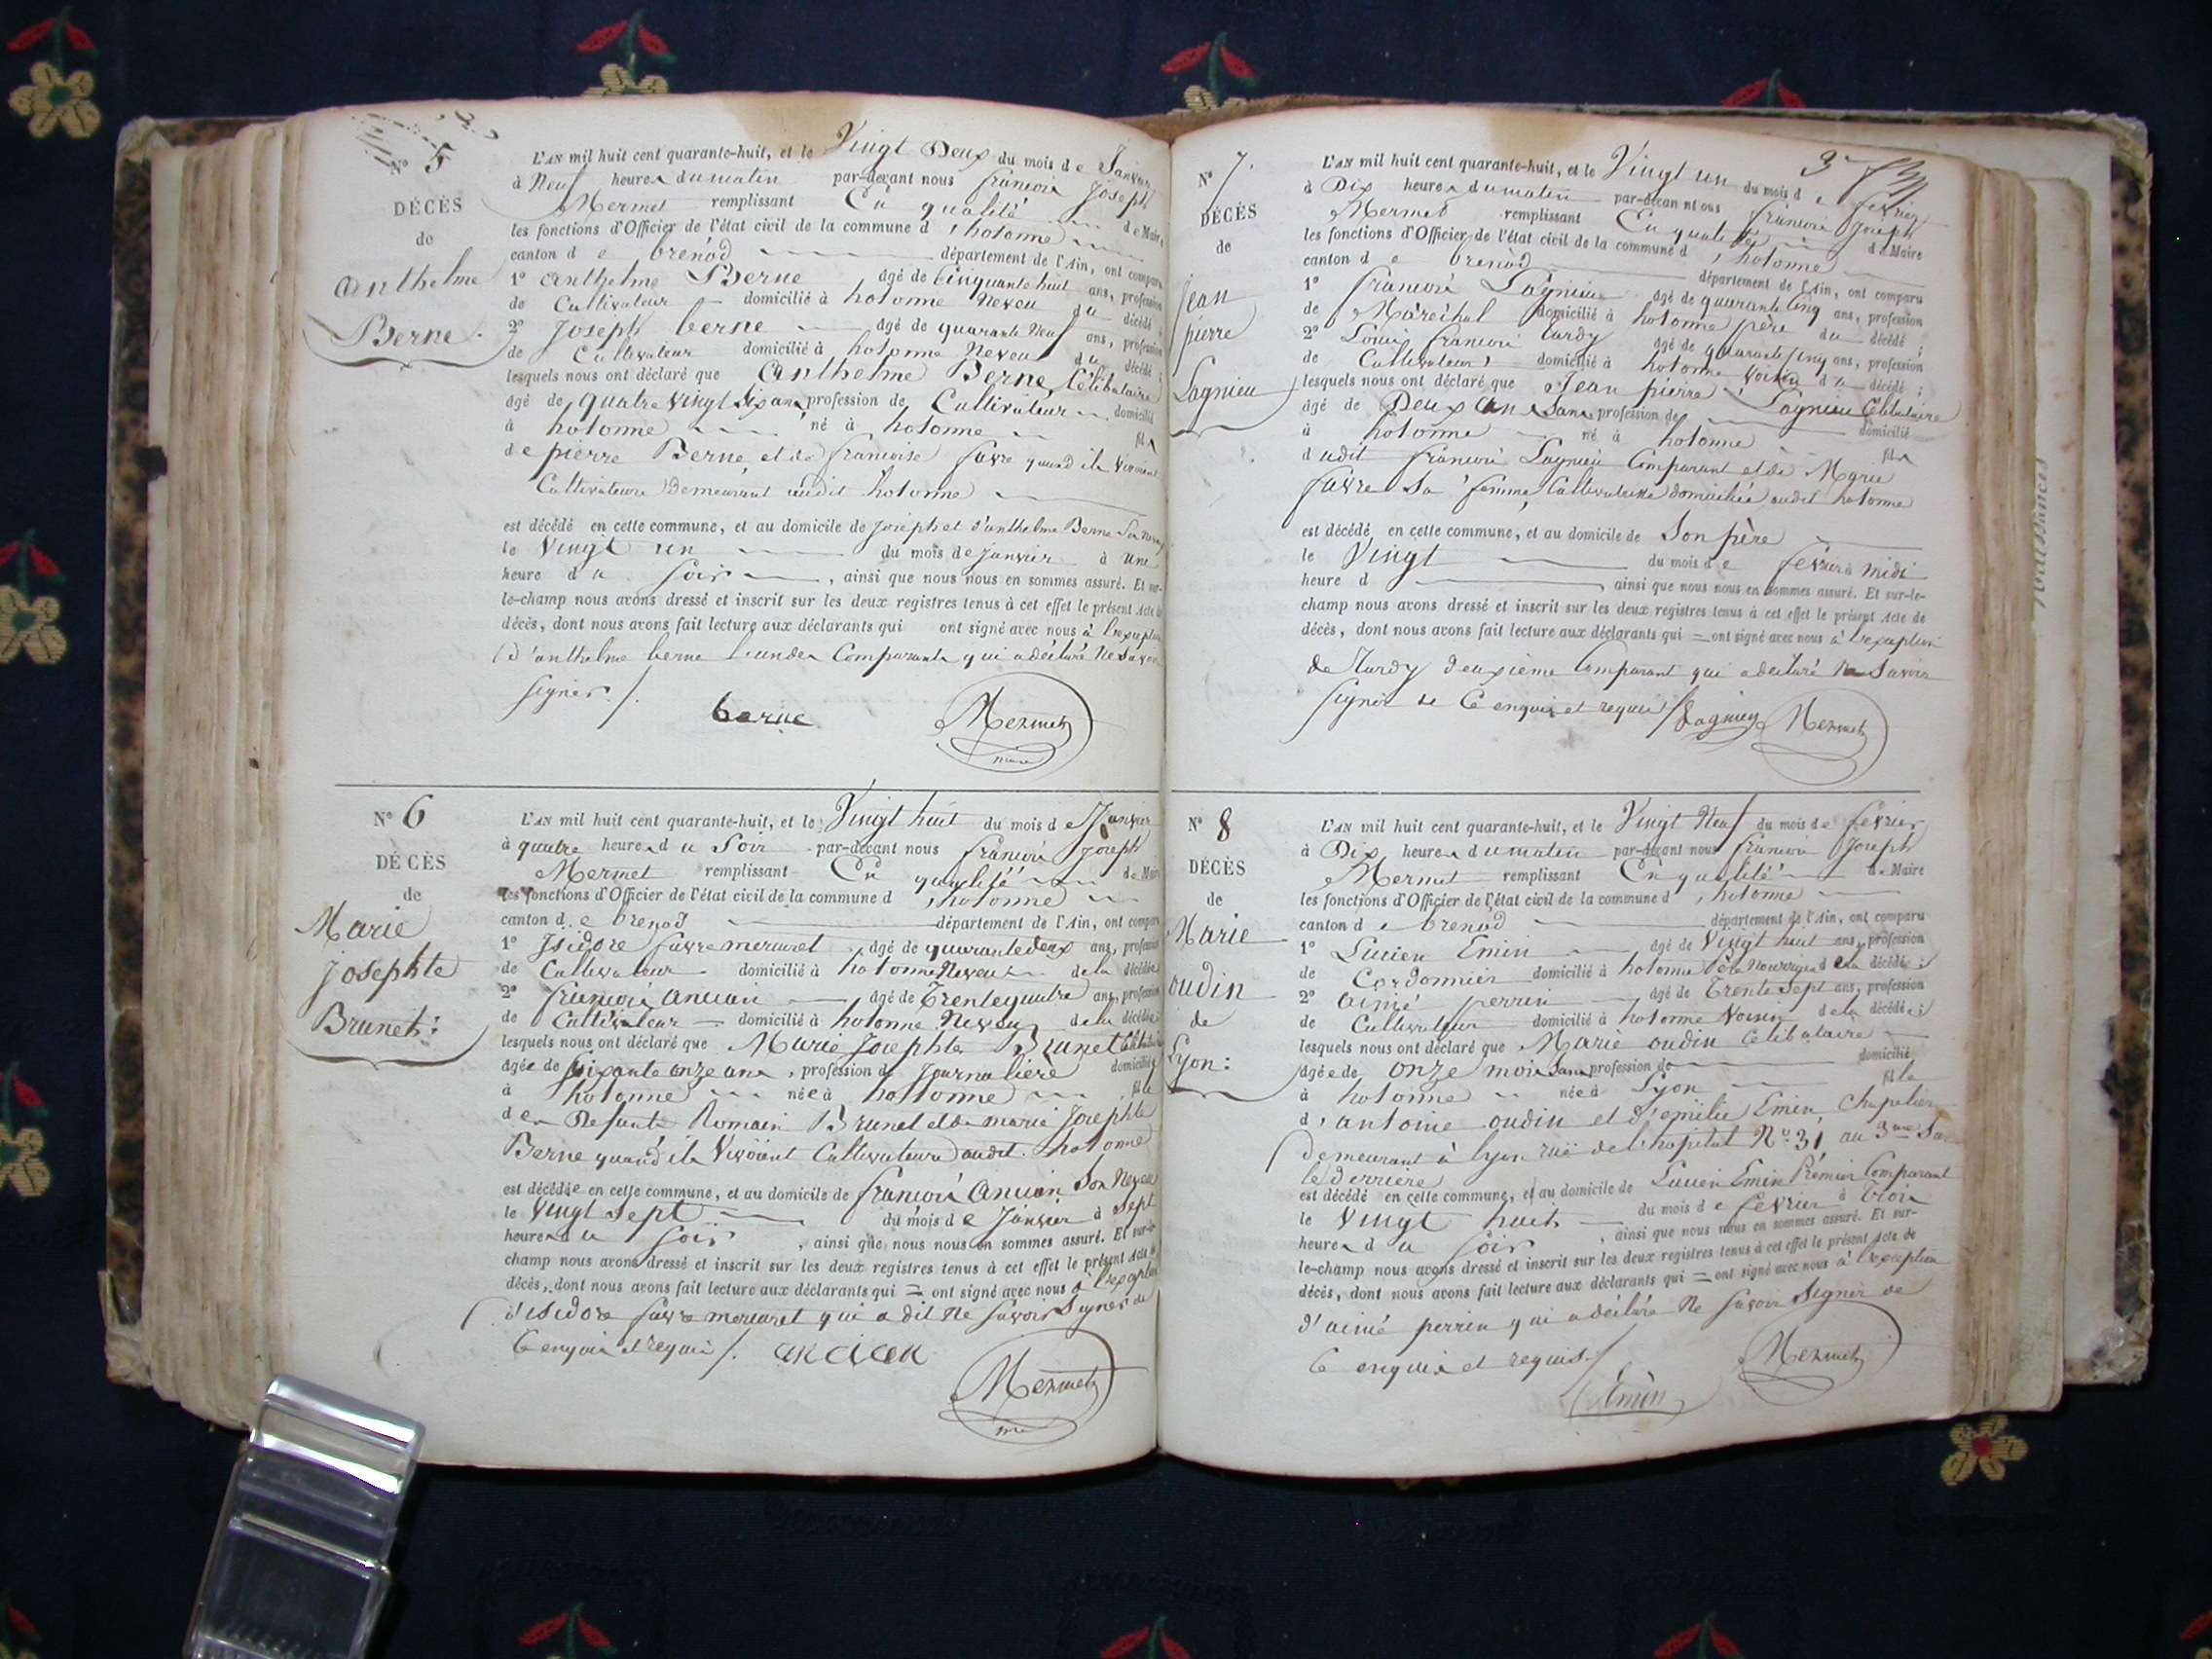 N° 5
DÉCÈS
de
Anthelme
Berne.
L'AN mil huit cent quarante-huit, et le Vingt Deux du mois de Janvier
à Neuf heures du matin par-devant nous françois Joseph
Mermet remplissant En qualité de Maire
les fonctions d'Officier de l'état civil de la commune d'hotonne
canton de brenod département de l'Ain, ont comparu
1° Anthelme Berne agé de Cinquante huit ans, profession
de Cultivateur domicilié à hotonne Neveu du décédé ;
2° Joseph berne agé de quarante Neuf ans, profession
de Cultivateur domicilié à hotonne Neveu du décédé ;
lesquels nous ont déclaré que Anthelme Berne Célibataire
agé de quatre Vingt six ans profession de Cultivateur domicilié
à hotonne né à hotonne fils
de pierre Berne et de francoise favre quand ils Vivoient
Cultivateurs Demeurant audit hotonne
est décédé en cette commune, et au domicile de Joseph et d'anthelme Berne
le Vingt un du mois de Janvier à Une
heure du soir , ainsi que nous nous en sommes assuré. Et sur-
le-champ nous avons dressé et inscrit sur les deux registres tenus à cet effet le présent Acte de
décès, dont nous avons fait lecture aux déclarants qui ont signé avec nous à l'exception
d'anthelme berne l'un des Comparants qui a déclaré Ne Savoir
signer ./.
berne
Mermet
maire
N° 6
DÉCÈS
de
Marie
Josephte
Brunet:
L'AN mil huit cent quarante-huit, et le Vingt huit du mois de Janvier
à quatre heures du Soir par-devant nous françois Joseph
Mermet remplissant En qualité de Maire
les fonctions d'Officier de l'état civil de la commune d'hotonne
canton de brenod département de l'Ain, ont comparu
1° Isidore favre mercuret agé de quarante deux ans, profession
de Cultivateur domicilié à hotonne Neveu de la décédée
2° françois Ancian agé de Trente quatre ans, profession
de Cultivateur domicilié à hotonne Neveu de la décédée
lesquels nous ont déclaré que Marie Josephte Brunet Célibataire
agée de soixante onze ans, profession de Journalière domiciliée
à hotonne née à hotonne fille
de Defunts Romain Brunet et de marie Josephte
Berne quand ils Vivoient Cultivateurs audit hotonne
est décédée en cette commune, et au domicile de françois Ancian Son Neveu
le Vingt Sept du mois de Janvier à Sept
heures du soir , ainsi que nous nous en sommes assuré. Et sur-le-
champ nous avons dressé et inscrit sur les deux registres tenus à cet effet le présent Acte de
décès, dont nous avons fait lecture aux déclarants qui = ont signé avec nous à l'exception
d'isidore favre mercuret qui a dit Ne Savoir Signer de
Ce enquis et requis /. ancian
Mermet
N° 7.
DÉCÈS
de
Jean
pierre
Lagnieu
3
L'AN mil huit cent quarante-huit, et le Vingt un du mois de fevrier
à Dix heures du matin par-devant nous françois Joseph
Mermet remplissant En qualité de Maire
les fonctions d'Officier de l'état civil de la commune d'hotonne
canton de brenod département de l'Ain, ont comparu
1° françois Lagnieu agé de quarante Cinq ans, profession
de Maréchal domicilié à hotonne père du décédé ;
2° Louis françois tardy agé de quarante Cinq ans, profession
de Cultivateur domicilié à hotonne Voisin du décédé ;
lesquels nous ont déclaré que Jean pierre Lagnieu Célibataire
agé de Deux ans Sans profession de domicilié
à hotonne né à hotonne fils
dudit françois Lagnieu Comparant et de Marie
favre Sa femme, Cultivatrice domiciliés audit hotonne
est décédé en cette commune, et au domicile de Son père
le Vingt du mois de fevrier à midi
heure d ainsi que nous nous en sommes assuré. Et sur-le-
champ nous avons dressé et inscrit sur les deux registres tenus à cet effet le présent Acte de
décès, dont nous avons fait lecture aux déclarants qui = ont signé avec nous à l'exception
de Tardy deuxième Comparant qui a declaré Ne Savoir
signer de Ce enquis et requis / Lagnieu Mermet
N° 8
DÉCÈS
de
Marie
oudin
de
Lyon:
L'AN mil huit cent quarante-huit, et le Vingt Neuf du mois de fevrier
à Dix heures du matin par-devant nous françois Joseph
Mermet remplissant En qualité de Maire
les fonctions d'Officier de l'état civil de la commune d'hotonne
canton de brenod département de l'Ain, ont comparu
1° Lucien Emin agé de Vingt huit ans, profession
de Cordonnier domicilié à hotonne de la décédée ;
2° aimé perrin agé de Trente Sept ans, profession
de Cultivateur domicilié à hotonne Voisin de la décédée ;
lesquels nous ont déclaré que Marie oudin Célibataire
agée de onze mois Sans profession de domicilié
à hotonne née à Lyon fille
d'antoine oudin et d'emilie Emin Chapeliers
demeurant à lyon rüe de l'hopital N° 31 au 3me Sur
le derrière
est décédé en cette commune, et au domicile de Lucien Emin Premier Comparant
le Vingt huit du mois de fevrier à Trois
heures du soir , ainsi que nous nous en sommes assuré. Et sur-
le-champ nous avons dressé et inscrit sur les deux registres tenus à cet effet le présent Acte de
décès, dont nous avons fait lecture aux déclarants qui = ont signé avec nous à l'exception
d'aimé perrin qui a declaré Ne Savoir Signer de
Ce enquis et requis./
Mermet
Emin